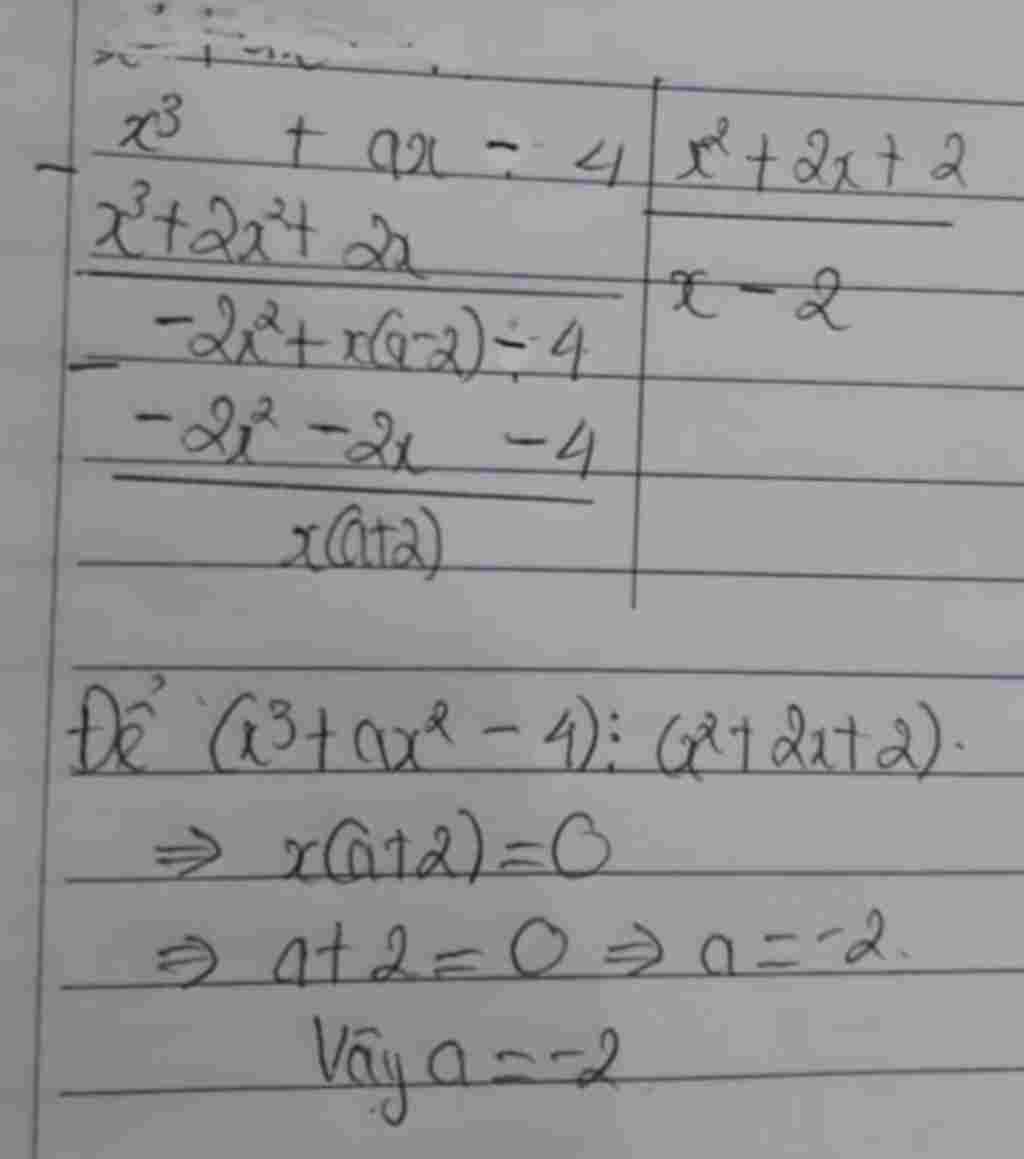 x³ + ax - 4 | x² + 2x + 2
- x³ + 2x² + 2x | x - 2
-2x² + x(a-2) - 4
- -2x² - 2x - 4
x(a+2)
Để (x³ + ax² - 4) ⋮ (x² + 2x + 2).
⇒ x(a+2) = 0
⇒ a + 2 = 0 ⇒ a = -2.
Vậy a = -2